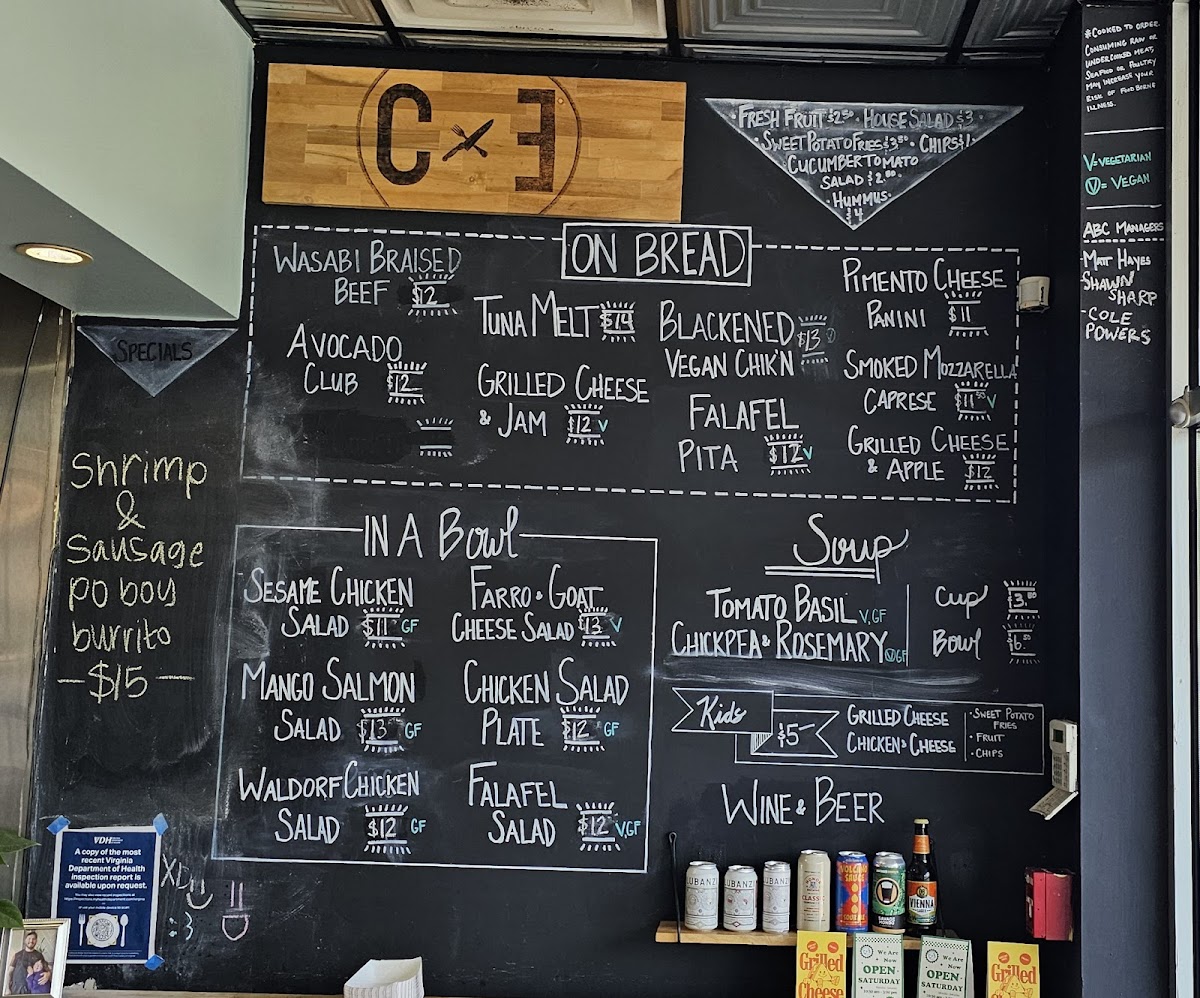 C E
FRESH FRUIT $2.50 · HOUSE SALAD $3
· SWEET POTATO FRIES $3.50 · CHIPS $1 ·
CUCUMBER TOMATO
SALAD $2.50 ·
· HUMMUS ·
$4
*COOKED TO ORDER.
CONSUMING RAW OR
UNDERCOOKED MEAT,
SEAFOOD OR POULTRY
MAY INCREASE YOUR
RISK OF FOODBORNE
ILLNESS.
V=VEGETARIAN
Ⓥ= VEGAN
ABC MANAGERS
-MATT HAYES
SHAWN
SHARP
-COLE
POWERS
SPECIALS
Shrimp
&
Sausage
po boy
burrito
-$15-
ON BREAD
WASABI BRAISED
BEEF $12
AVOCADO
CLUB $12
TUNA MELT $14
GRILLED CHEESE
& JAM $12 V
BLACKENED $13 Ⓥ
VEGAN CHIK'N
FALAFEL
PITA $12 V
PIMENTO CHEESE
PANINI $11
SMOKED MOZZARELLA
CAPRESE $11.50 V
GRILLED CHEESE
& APPLE $12
IN A Bowl
SESAME CHICKEN
SALAD $11 GF
MANGO SALMON
SALAD $13 GF
WALDORF CHICKEN
SALAD $12 GF
FARRO & GOAT
CHEESE SALAD $13 V
CHICKEN SALAD
PLATE $12 GF
FALAFEL
SALAD $12 V,GF
Soup
TOMATO BASIL V,GF
CHICKPEA & ROSEMARY Ⓥ GF
Cup $3.50
Bowl $6.50
Kids
$5-
GRILLED CHEESE
CHICKEN & CHEESE
· SWEET POTATO
FRIES
· FRUIT
· CHIPS
WINE & BEER
VDH
A copy of the most
recent Virginia
Department of Health
inspection report is
available upon request.
XD
:3
LUBANZI
LUBANZI
LUBANZI
CLASSIC
VOLCANO
SAUCE
SOUR ALE
VIENNA
Grilled
Cheese
We Are
Now
OPEN
SATURDAY
We Are
Now
OPEN
SATURDAY
Grilled
Cheese